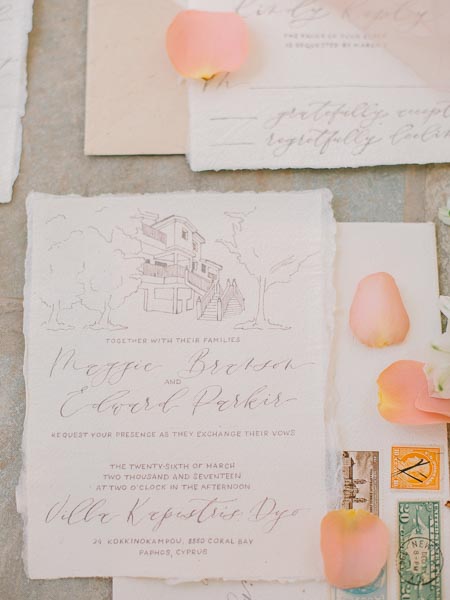 THE FAVOR OF YOUR REPLY
IS REQUESTED BY MARCH 1
gratefully accept
regretfully decline
TOGETHER WITH THEIR FAMILIES
Maggie Branson
AND
Edward Parkir
REQUEST YOUR PRESENCE AS THEY EXCHANGE THEIR VOWS
THE TWENTY-SIXTH OF MARCH
TWO THOUSAND AND SEVENTEEN
AT TWO O'CLOCK IN THE AFTERNOON
Villa Kapestris Dyo
24 KOKKINOKAMPOU, 8560 CORAL BAY
PAPHOS, CYPRUS
20